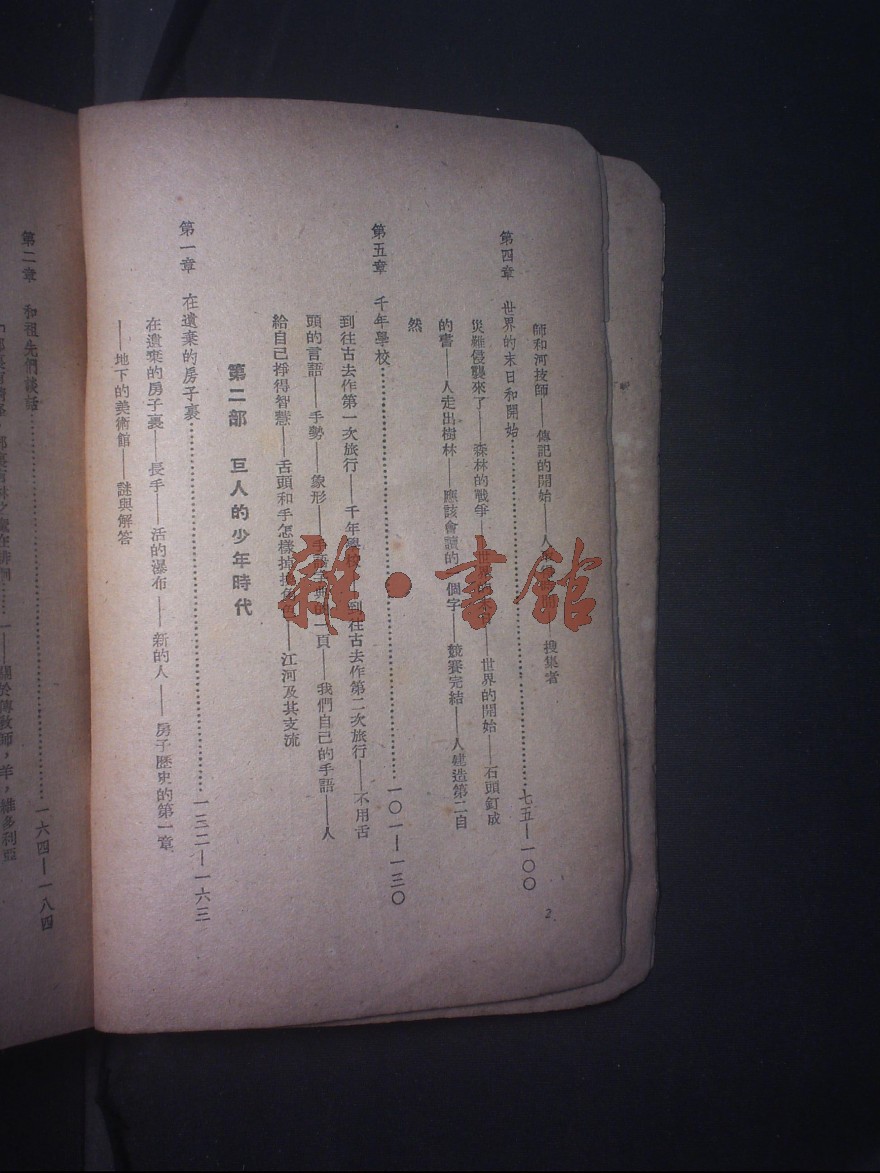 師和河技師——傳記的開始——人 搜集者
第四章 世界的末日和開始…………七五—一〇〇
災難侵襲來了——森林的戰爭——世界 ——世界的開始——石頭釘成
的書——人走出樹林——應該會讀的一個字——競賽完結——人建造第二自
然
第五章 千年學校…………一〇一—一三〇
到往古去作第一次旅行——千年學校——到往古去作第二次旅行——不用舌
頭的言語——手勢——象形——手語字典的一頁——我們自己的手語——人
給自己掙得智慧——舌頭和手怎樣掉換角色——江河及其支流
第二部 巨人的少年時代
第一章 在遺棄的房子裏…………一三二—一六三
在遺棄的房子裏——長手——活的瀑布——新的人——房子歷史的第一章
——地下的美術館——謎與解答
2
第二章 和祖先們談話…………一六四—一八四
關於傳教師，羊，維多利亞
雜·書館